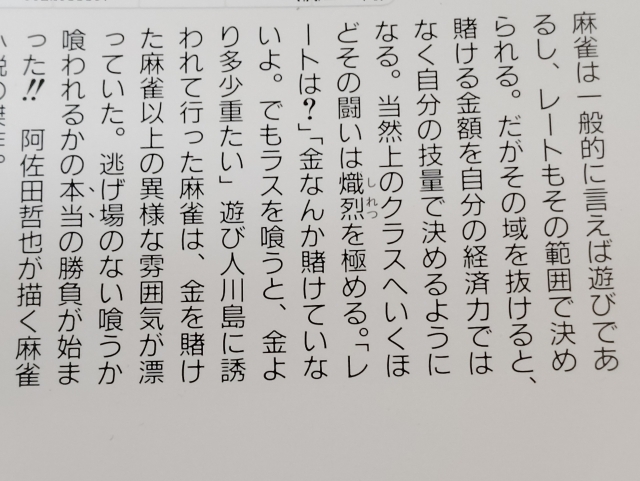 麻雀は一般的に言えば遊びであ
るし、レートもその範囲で決め
られる。だがその域を抜けると、
賭ける金額を自分の経済力では
なく自分の技量で決めるように
なる。当然上のクラスへいくほ
どその闘いは熾烈を極める。「レ
ートは?」「金なんか賭けていな
いよ。でもラスを喰うと、金よ
り多少重たい」遊び人川島に誘
われて行った麻雀は、金を賭け
た麻雀以上の異様な雰囲気が漂
っていた。逃げ場のない喰うか
喰われるかの本当の勝負が始ま
った!! 阿佐田哲也が描く麻雀
小説の傑作。